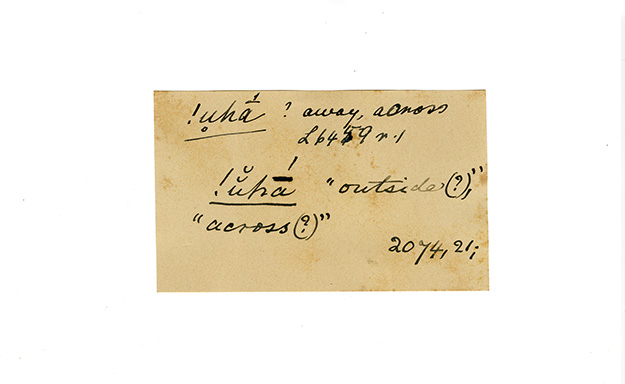 !ụhā́ ? away, across
L 6459 r. 1
!ŭhā́ "outside (?),"
"across (?)"
2074, 21;